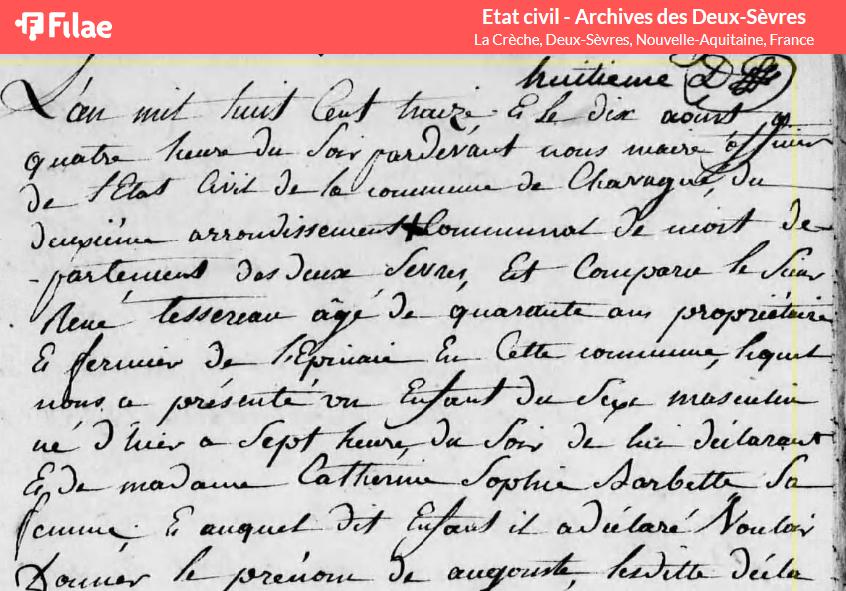 Filae
Etat civil - Archives des Deux-Sèvres
La Crèche, Deux-Sèvres, Nouvelle-Aquitaine, France
huitieme
L'an mil huit Cent traize & le dix aoust a
quatre heure du Soir pardevant nous maire officier
de l'Etat Civil de la commune de Chavagné, du
deuxième arrondissement Communal de niort de
partement des deux Sevres, Est Comparu le Sieur
René tessereau âgé de quarante ans propriétaire
& fermier de l'Epinaie En Cette commune, lequel
nous a présenté un Enfant du Sexe masculin
né d'hier a Sept heure du Soir de lui déclarant
& de madame Catherine Sophie Barbette Sa
femme; & auquel dit Enfant il a déclaré Vouloir
Donner le prénom de augouste, lesditte décla